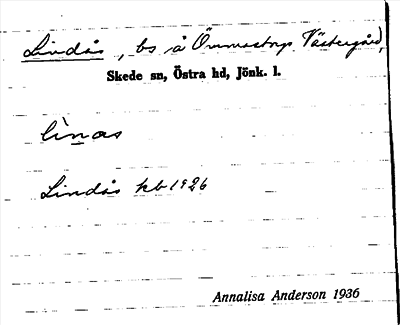 Lindås, bs å Ömmestorp Västergård,
Skede sn, Östra hd, Jönk. l.
lìnas
Lindås kb 1926
Annalisa Anderson 1936